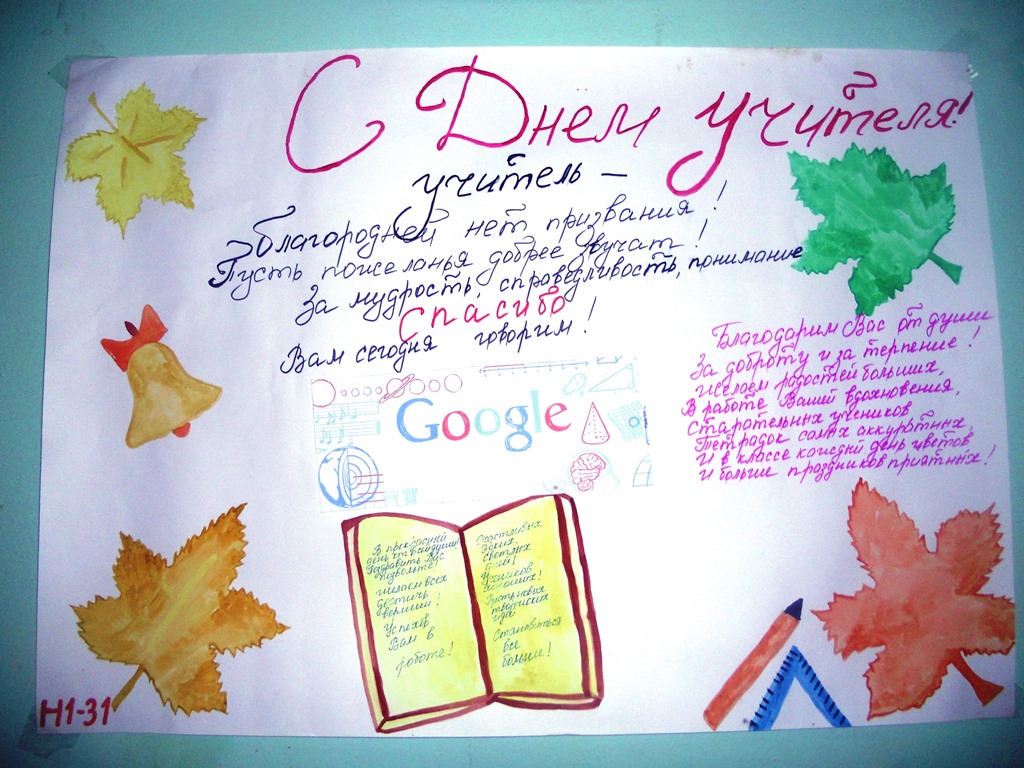 С Днем учителя!
учитель –
Благородней нет призвания!
Пусть пожеланья добрее звучат!
За мудрость, справедливость, понимание
Спасибо
Вам сегодня говорим!
Благодарим Вас от души
За доброту и за терпение!
Желаем радостей больших,
В работе Вашей вдохновения,
Старательных учеников
Тетрадок самых аккуратных,
И в классе каждый день цветов
И больше праздников приятных!
Google
В прекрасный
день от всей души
Поздравить Вас
Позвольте!
Желаем всех
достичь
вершин!
Успехов
Вам в
работе!
Счастливых
Ярких,
Светлых
дней!
Учеников
хороших!
Пусть новых
творческих
идей
Становиться
все
больше!
Н1-31